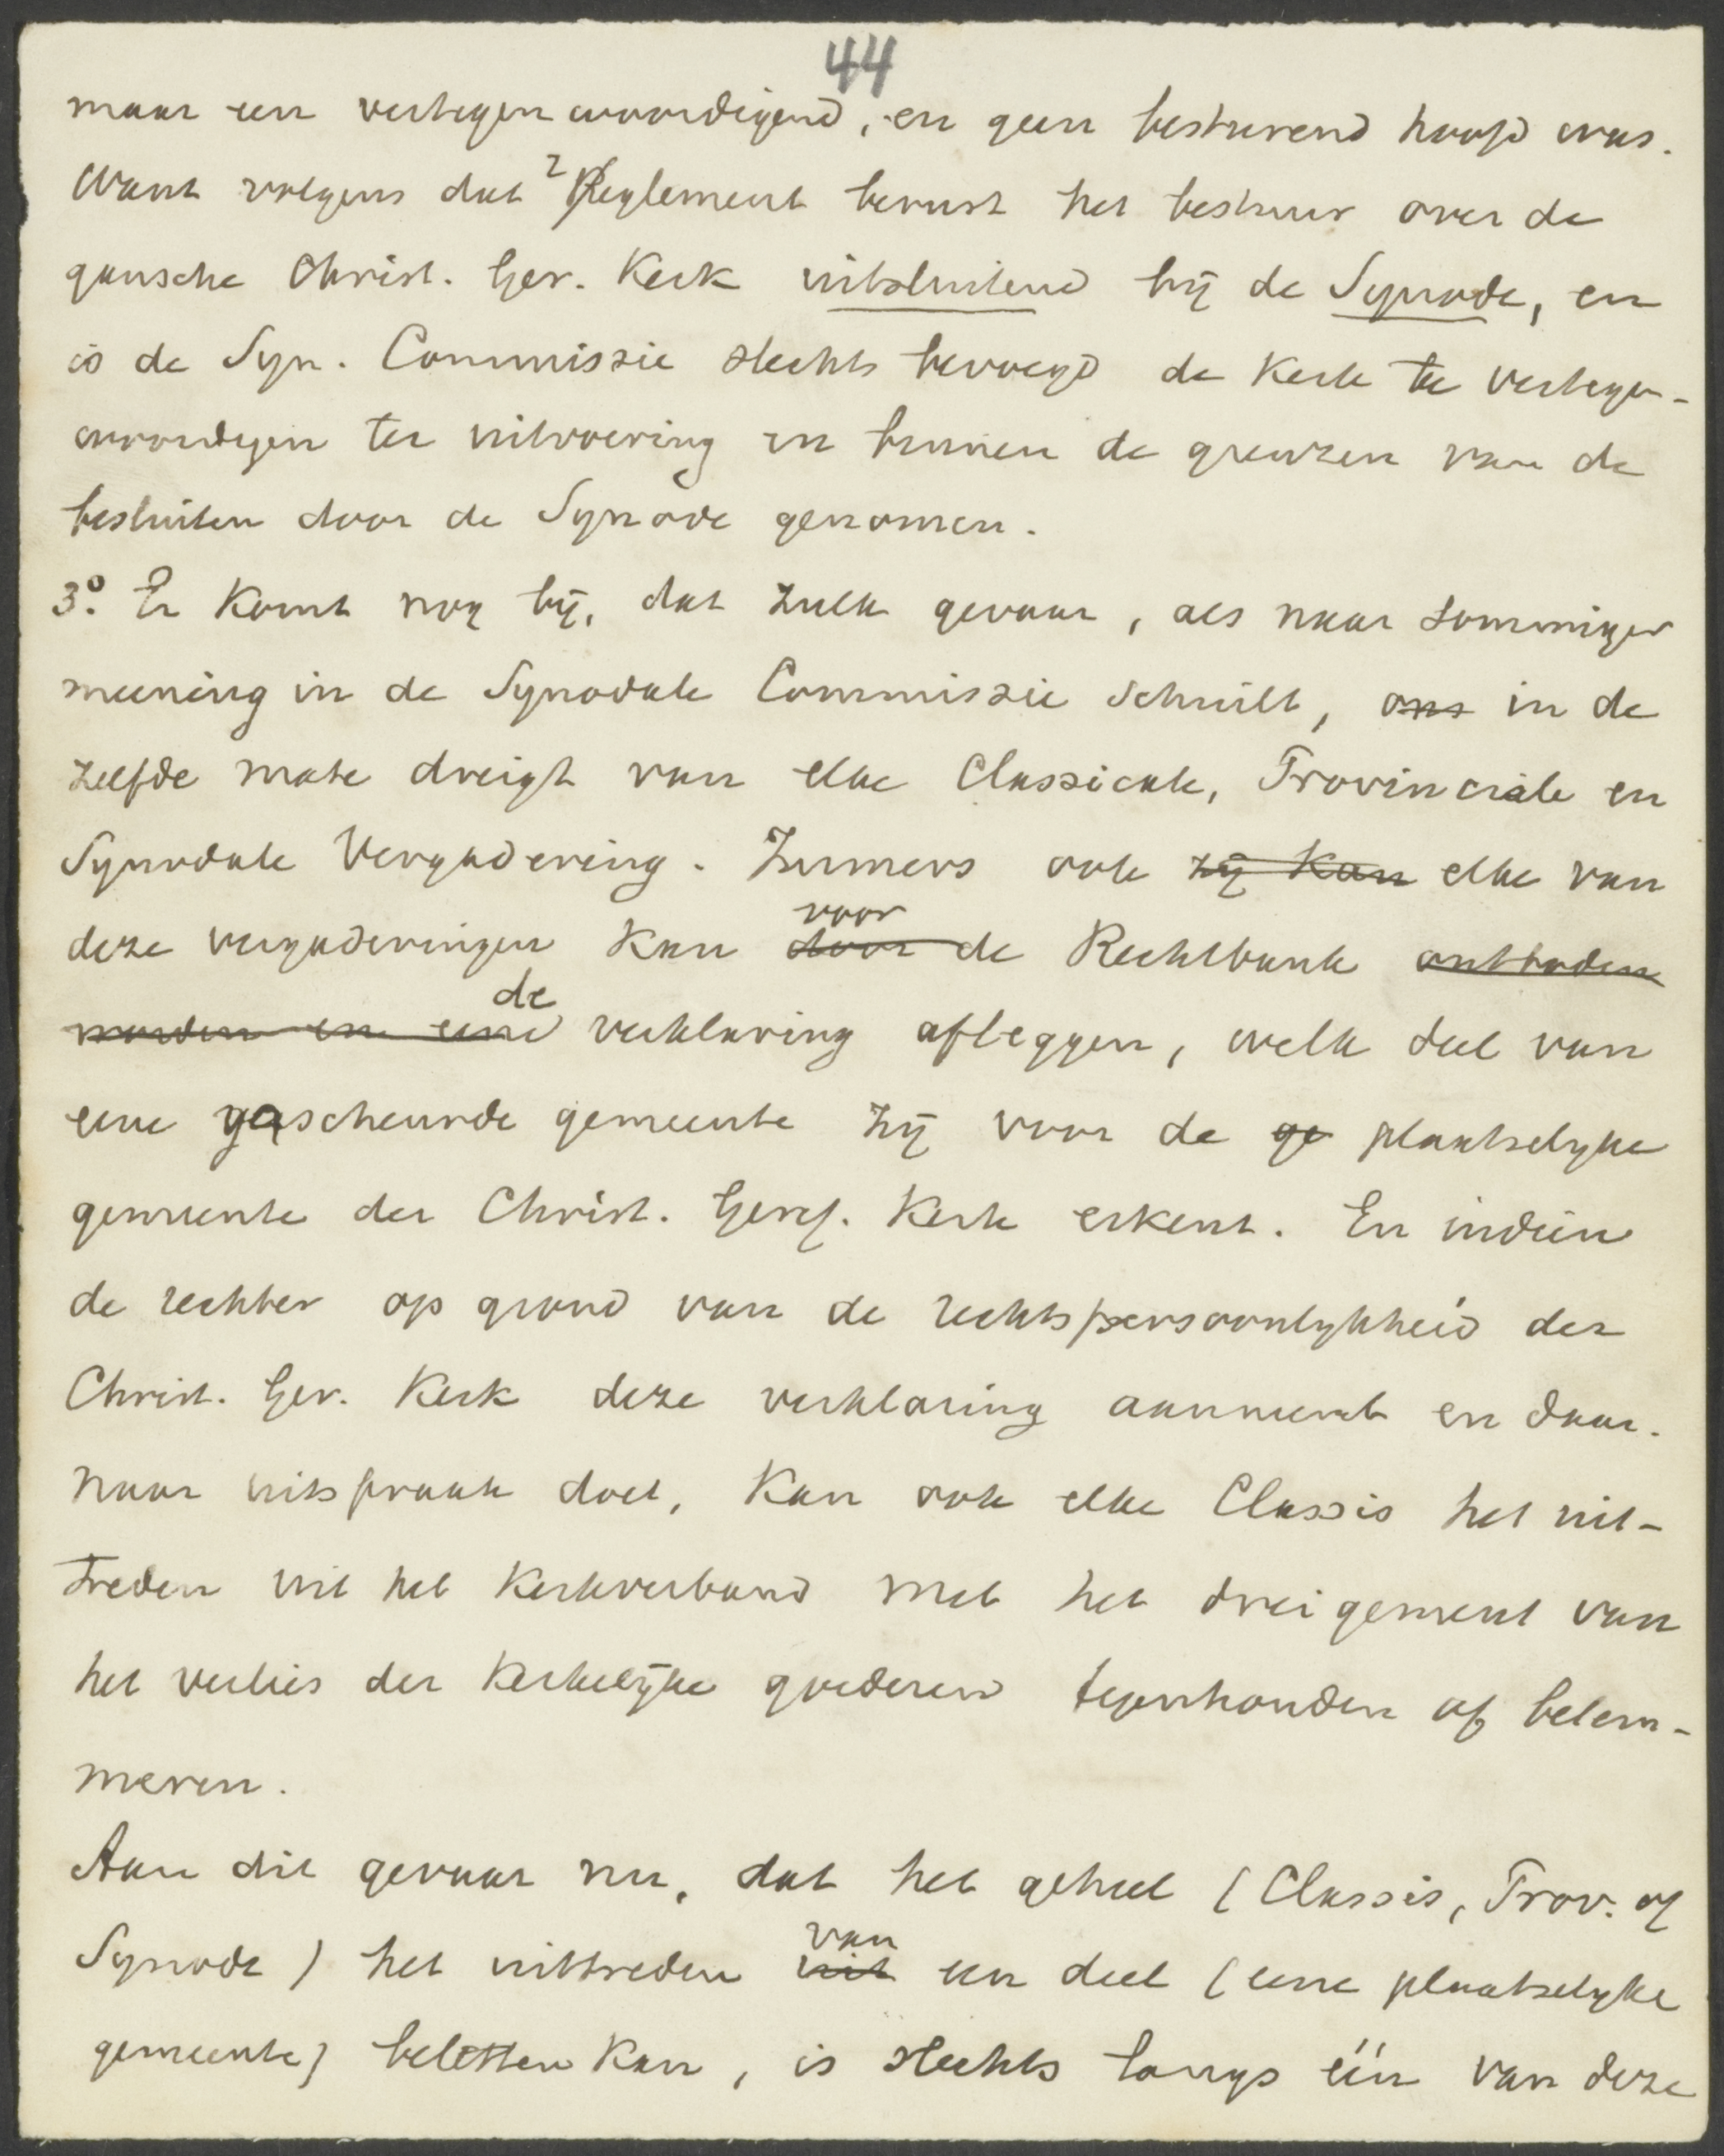 44
maar een vertegenwoordigend, en geen besturend hoofd was.
Want volgens dat 2 Reglement berust het bestuur over de
gansche Christ. Ger. Kerk uitsluitend bij de Synode, en
is de Syn. Commissie slechts bevoegd de Kerk te vertegen-
woordigen ter uitvoering en binnen de grenzen van de
besluiten door de Synode genomen.
3º. Er komt nog bij, dat zulk gevaar, als naar sommiger
meening in de Synodale Commissie schuilt, ons in de
zelfde mate dreigt van elke Classicale, Provinciale en
Synodale Vergadering. Immers ook zij kan elke van
voor
deze vergaderingen kan door de Rechtbank ontboden
de
worden en eene verklaring afleggen, welk deel van
eene gescheurde gemeente zij voor de ge plaatselyke
gemeente der Christ. Geref. Kerk erkent. En indien
de rechter op grond van de rechtspersoonlykheid der
Christ. Ger. Kerk deze verklaring aanneemt en daar-
naar uitspraak doet, kan ook elke Classis het uit-
treden uit het Kerkverband met het dreigement van
het verlies der Kerkelijke goederen tegenhouden of belem-
meren.
Aan dit gevaar nu, dat het geheel (Classis, Prov. of
van
Synode) het uittreden uit een deel (eene plaatselyke
gemeente) beletten kan, is slechts langs één van deze